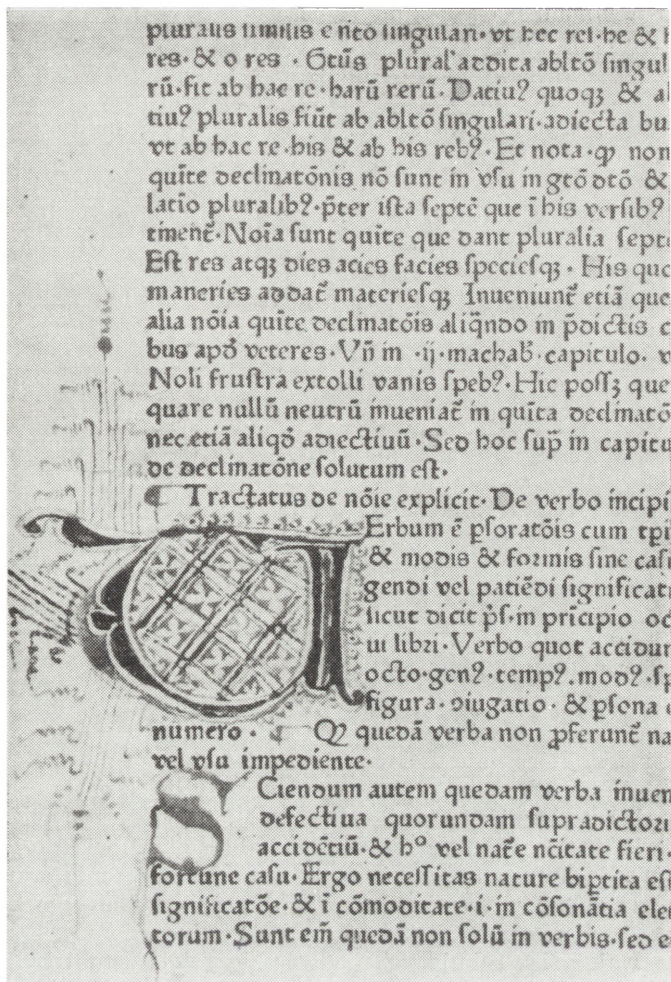 pluralis similis e rito singulari· vt hec res·he & h
res· & o res · Gtūs plural' addita abltō singul
rū·fit ab hac re·harū rerū· Datiuꝰ quoqꝫ & al
tiuꝰ pluralis fiūt ab abltō singulari·adiecta bu
vt ab hac re·his & ab his rebꝰ· Et nota·ꝙ non
quīte declinatōnis nō sunt in vsu in gtō dtō &
latio pluralibꝰ·p̄ter ista septē que ī his versibꝰ
tinent̄·Noīa sunt quīte que dant pluralia septe
Est res atqꝫ dies acies facies speciesqꝫ · His quo
maneries addat̄ materiesqꝫ Inueniunt̄ etiā que
alia nōia quīte declinatōis aliqn̄do in p̄dictis c
bus apd̄ veteres·Vn̄ in ·ij·machab̄·capitulo· v
Noli frustra extolli vanis spebꝰ·Hic possꝫ que
quare nullū neutrū inueniat̄ in quīta declinatō
nec etiā aliqd̄ adiectiuū·Sed hoc sup̄ in capitu
de declinatōne solutum est·
Tractatus de nōie explicit·De verbo incipi
Erbum ē ꝑs oratōis cum tp̄i
& modis & formis sine casu
gendi vel patiēdi significati
sicut dicit p̄s·in prīcipio oc
ui libri·Verbo quot accidun
octo·genꝰ·tempꝰ·modꝰ·sp
figura·ꝯiugatio·& ꝑsona c
numero · Q quedā verba non ꝓferunt̄ na
vel vsu impediente·
Ciendum autem quedam verba inuen
defectiua quorundam supradictori
accidētiū·& hº vel nat̄e nc̄itate fieri·
fortune casu·Ergo necessitas nature biꝑtita est
significatōe·& ī cōmoditate·i·in cōsonātia ele
torum·Sunt eim̄ quedā non solū in verbis·sed e